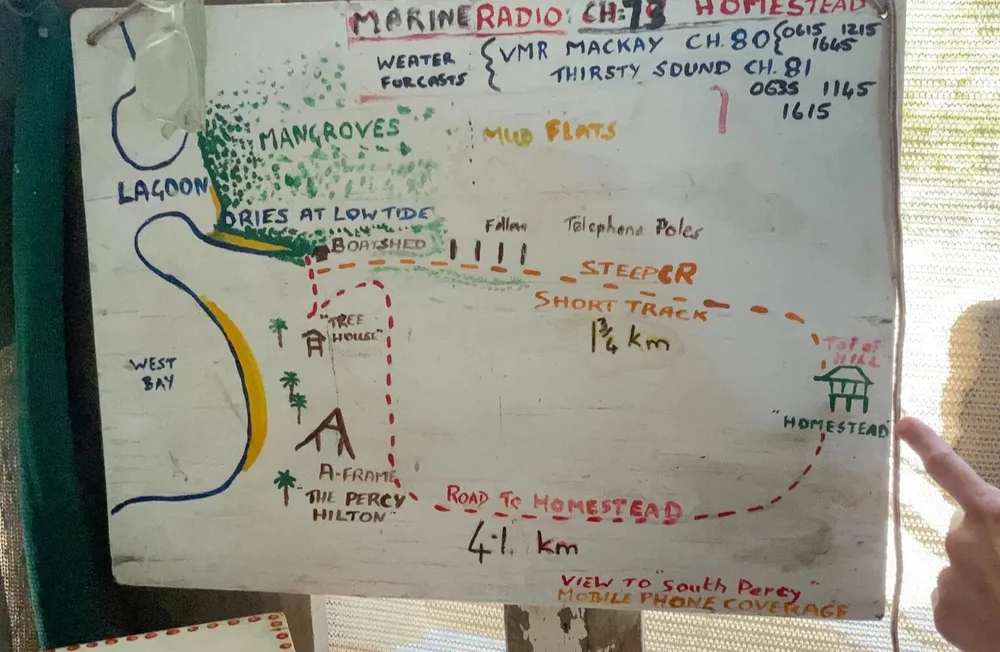 MARINE RADIO: CH:73 HOMESTEAD
WEATER FORCASTS
VMR MACKAY CH.80 0615 1215
1645
THIRSTY SOUND CH.81
0635 1145
1615
MANGROVES
MUD FLATS
LAGOON
DRIES AT LOW TIDE
BOATSHED
Fallen Telephone Poles
STEEPER
SHORT TRACK
1¾ km
"TREE
HOUSE"
WEST
BAY
TOP OF
HILL
"HOMESTEAD"
A-FRAME
"THE PERCY
HILTON"
ROAD TO HOMESTEAD
km
VIEW TO "South Percy"
MOBILE PHONE COVERAGE